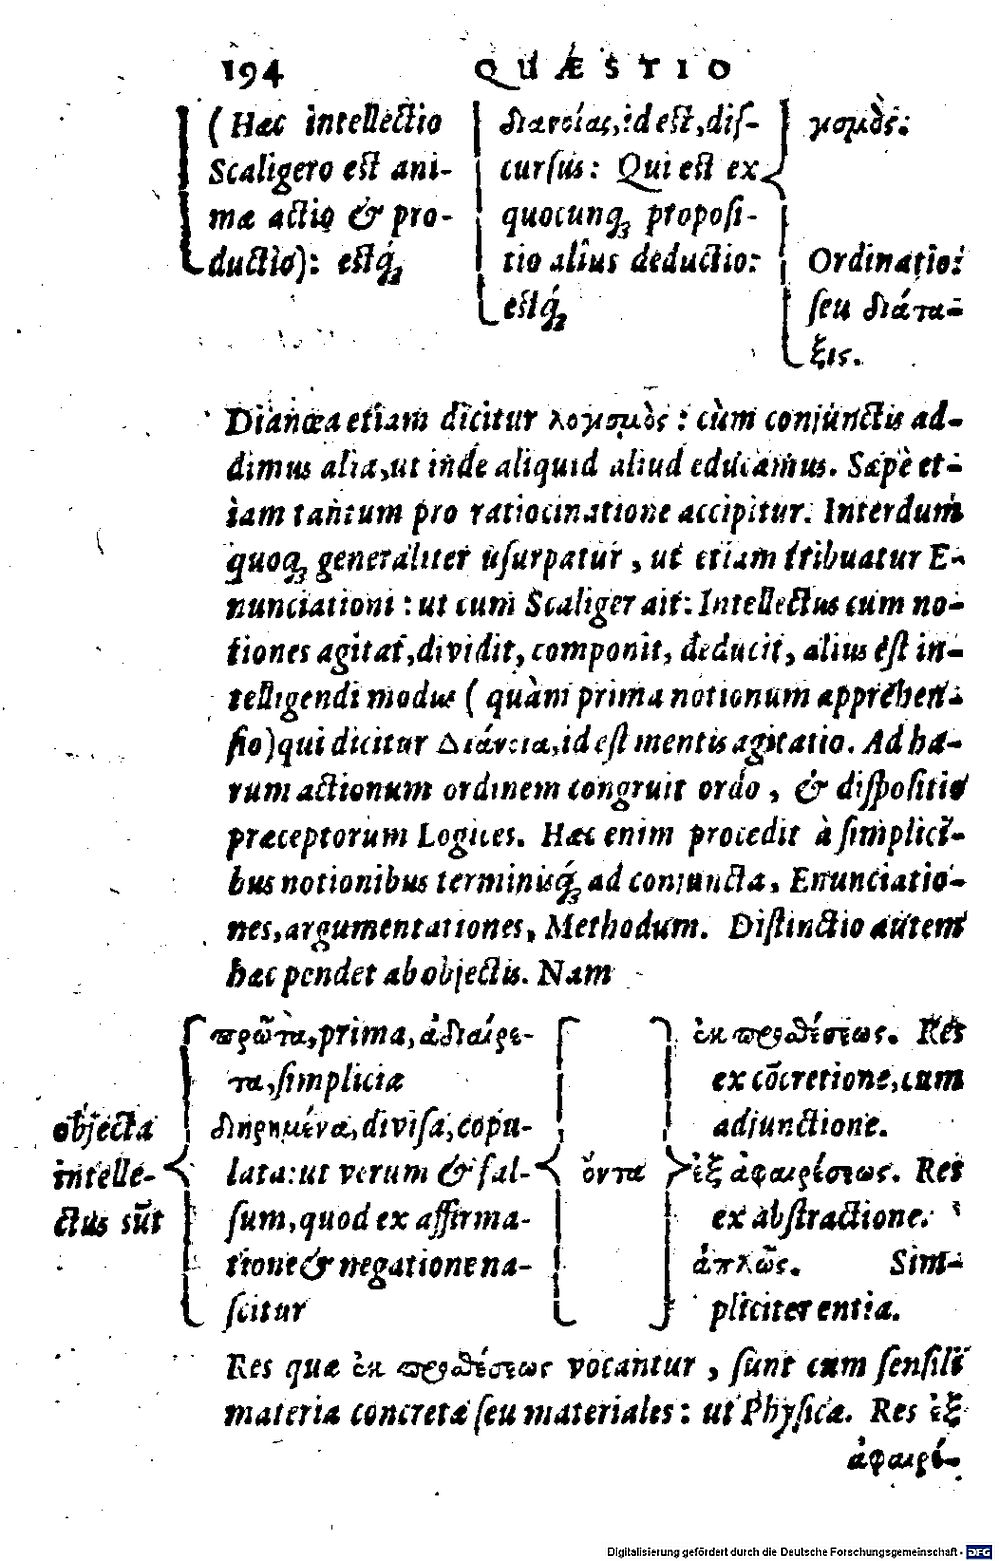 194 QUÆSTIO
(Hæc intellectio
Scaligero est ani-
mæ actio & pro-
ductio): estq́;
διανοίας, id est, dis-
cursus: Qui est ex
quocunq; proposi-
tio alius deductio:
estq́;
γισμὸς:
Ordinatio:
seu διάτα-
ξις.
Dianœa etiam dicitur λογισμὸς: cùm conjunctis ad-
dimus alia, ut inde aliquid aliud educamus. Sæpè et-
iam tantum pro ratiocinatione accipitur. Interdum
quoq; generaliter usurpatur, ut etiam tribuatur E-
nunciationi: ut cum Scaliger ait: Intellectus cum no-
tiones agitat, dividit, componit, deducit, alius est in-
telligendi modus (quàm prima notionum apprehen-
sio) qui dicitur Διάνοια, id est mentis agitatio. Ad ha-
rum actionum ordinem congruit ordo, & dispositio
præceptorum Logices. Hæc enim procedit à simplici-
bus notionibus terminisq́; ad conjuncta, Enunciatio-
nes, argumentationes, Methodum. Distinctio autem
hæc pendet ab objectis. Nam
objecta
intelle-
ctus sūt
πρῶτα, prima, ἀδιαίρε-
τα, simplicia
διηρημένα, divisa, copu-
lata: ut verum & fal-
sum, quod ex affirma-
tione & negatione na-
scitur
ὄντα
ἐκ προθέσεως. Res
ex cōcretione, cum
adjunctione.
ἐξ ἀφαιρέσεως. Res
ex abstractione.
ἁπλῶς. Sim-
pliciter entia.
Res quæ ἐκ προθέσεως vocantur, sunt cum sensili
materia concretæ seu materiales: ut Physicæ. Res ἐξ
ἀφαιρέ-
Digitalisierung gefördert durch die Deutsche Forschungsgemeinschaft - DFG